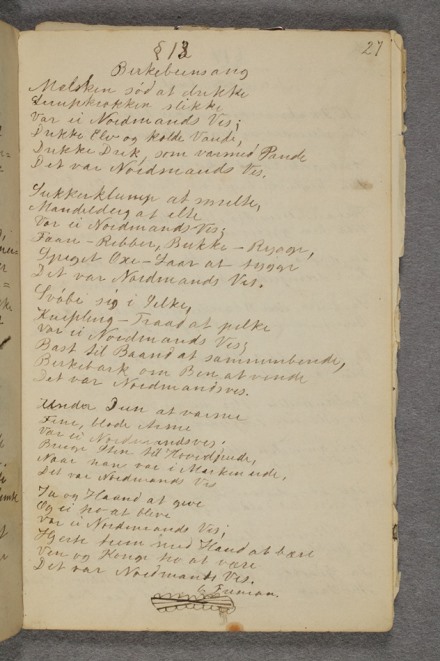 § 13
27
Birkebeensang
Melken sød at drikke
Sump slikke
Var ei Nordmands Vis;
Drikke Elv og kolde Vande,
Drikke Drik, som varmed Pande
Det var Nordmands Vis.
Sukkerklump at smelte,
Mandeldeig at elte
Var ei Nordmands Vis;
Faare-Ribber, Bukke-Rygge,
Speget Oxe-Laar at tygge
Det var Nordmands Vis.
Svøbe sig i Silke,
Kniplings-Traad at pilke
Var ei Nordmands Vis;
Bast til Baand at sammenbinde,
Birkebark om Ben at vinde
Det var Nordmandsvis.
Under Dun at varme
Fine, bløde Arme
Var ei Nordmandsvis.
Bruge Sten til Hovedpude,
Naar han var i Marken ude,
Det var Nordmands Vis
Ja og Haand at give
Og ei tro at blive
Var ei Nordmands Vis;
Hjerte frem med Haand at bære
Ven og Konge tro at være
Det var Nordmands Vis.